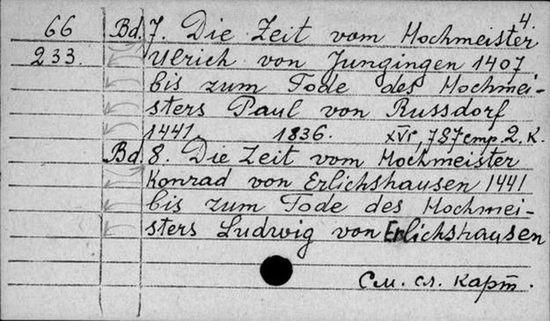 4.
66 Bd. 7. Die Zeit vom Hochmeister
233. Ulrich von Jungingen 1407
bis zum Tode des Hochmei-
sters Paul von Russdorf
1441. 1836. XVI, 787 стр. 2. К.
Bd. 8. Die Zeit vom Hochmeister
Konrad von Erlichshausen 1441
bis zum Tode des Hochmei-
sters Ludwig von Erlichshausen
См. сл. карт.